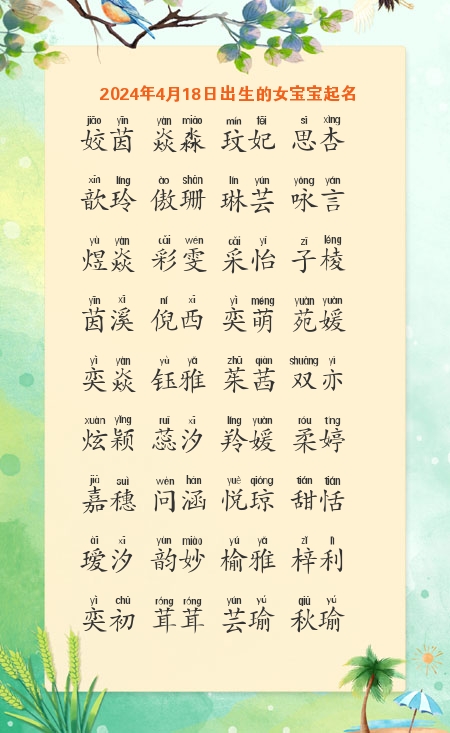 2024年4月18日出生的女宝宝起名
jiāo yīn yàn miǎo mín fēi sī xìng
姣茵 焱淼 玟妃 思杏
xīn líng ào shān lín yún yǒng yán
歆玲 傲珊 琳芸 咏言
yù yàn cǎi wén cǎi yí zǐ léng
煜焱 彩雯 采怡 子棱
yīn xī ní xī yì méng yuàn yuàn
茵溪 倪西 奕萌 苑媛
yì yàn yù yǎ zhū qiàn shuāng yì
奕焱 钰雅 茱茜 双亦
xuàn yǐng ruǐ xī líng yuàn róu tíng
炫颖 蕊汐 羚媛 柔婷
jiā suì wèn hán yuè qióng tián tián
嘉穗 问涵 悦琼 甜恬
ài xī yùn miào yú yǎ zǐ lì
瑷汐 韵妙 榆雅 梓利
yì chū róng róng yún yú qiū yú
奕初 茸茸 芸瑜 秋瑜